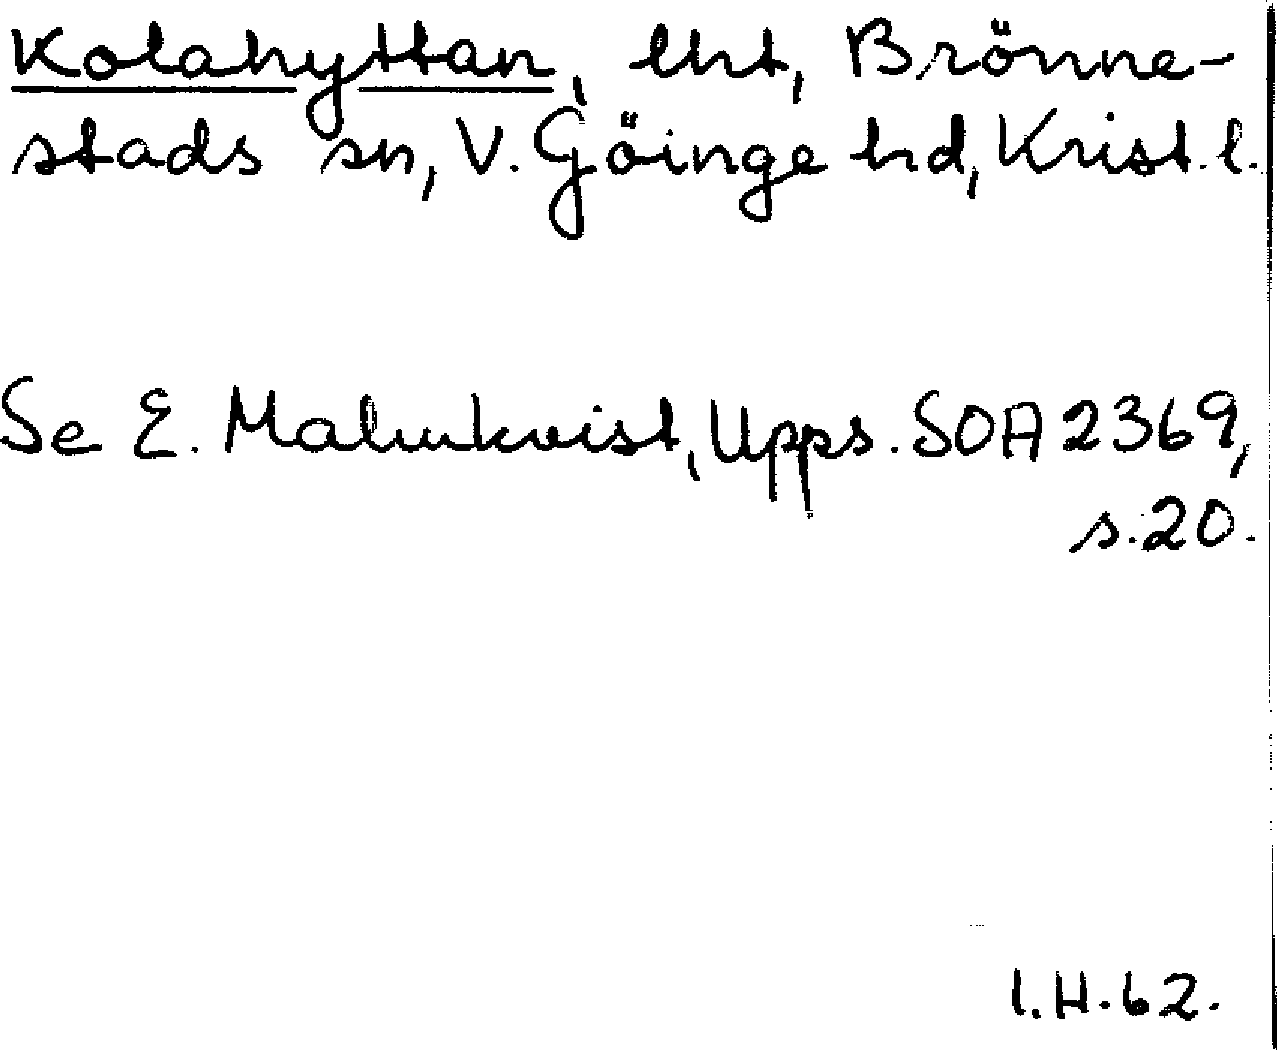 Kolahyttan, lht, Brönne-
stads sn, V. Göinge hd, Krist. l.
Se E. Malmkvist, Upps. SOA 2369,
s. 20.
I.H. 62.